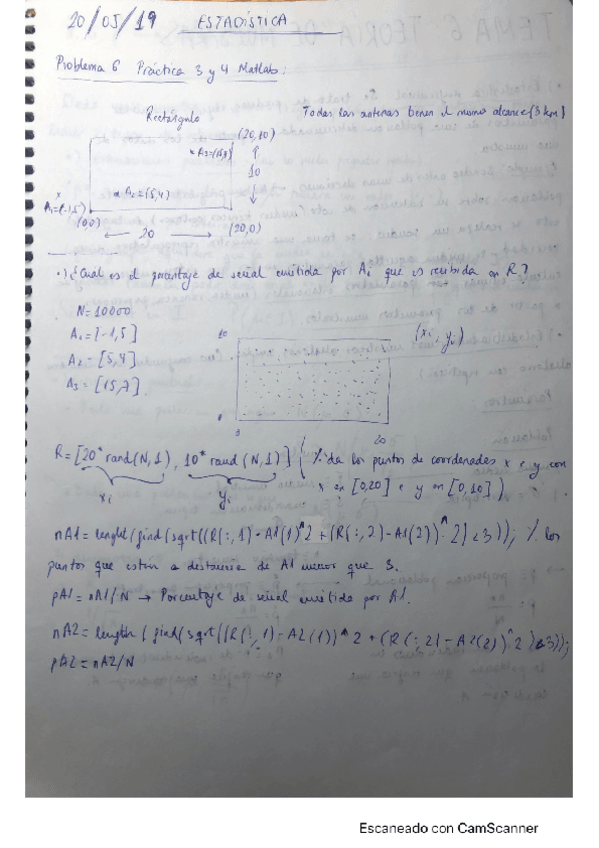 20/05/19 ESTADÍSTICA
Problema 6 Práctica 3 y 4 Matlab:
Rectángulo
Todas las antenas tienen el mismo alcance (3 km)
(20,10)
* A3=(15,7)
10
* A2=(5,4)
x
A1=(-1,5)
(0,0)
← 20 →
(20,0)
•) ¿Cual es el porcentaje de señal emitida por Ai que es recibida en R?
N=10000
A1=[-1,5]
A2=[5,4]
A3=[15,7].
10
(xi, yi)
0
0
20
R=[20*rand(N,1), 10*rand(N,1)] (% da los puntos de coordenadas x e y con
xi yi x en [0,20] e y en [0,10])
nA1= lenght(find(sqrt((R(:,1)-A1(1)^2+(R(:,2)-A1(2))^2)<3)); % los
puntos que estén a distancia de A1 menor que 3.
pA1=nA1/N → Porcentaje de señal emitida por A1.
nA2=length(find(sqrt((R(:,1)-A2(1))^2+(R(:,2)-A2(2))^2)<3));
pA2=nA2/N
Escaneado con CamScanner